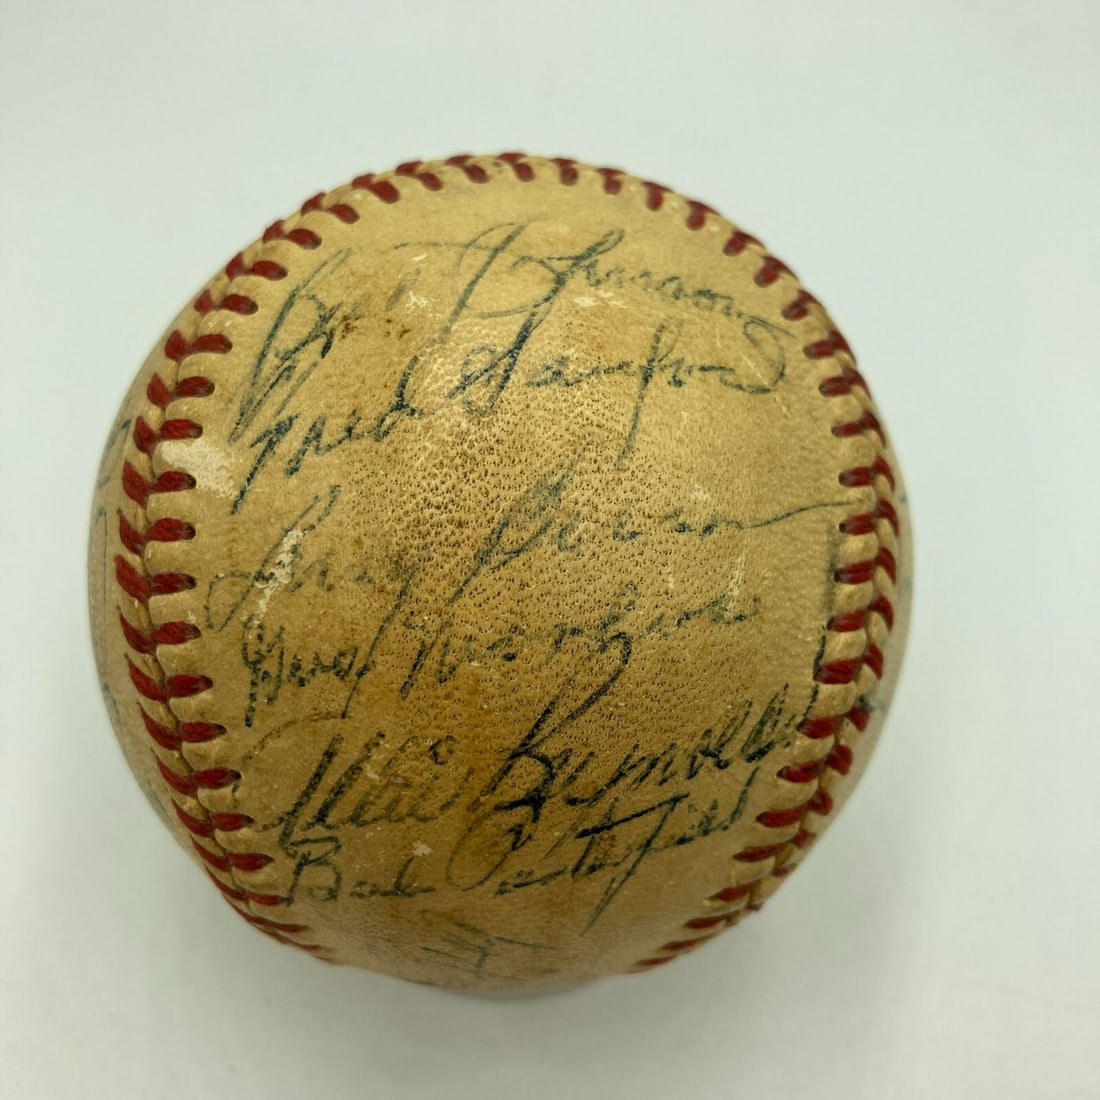 Bill Johnson
Fred Sanford
Larry Berra
Gus Niarhos
Allie Reynolds
Bob Porterfield